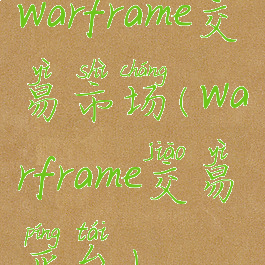 warframe交
yì shì chǎng
易市场(wa
jiāo yì
rframe交易
píng tái
平台)